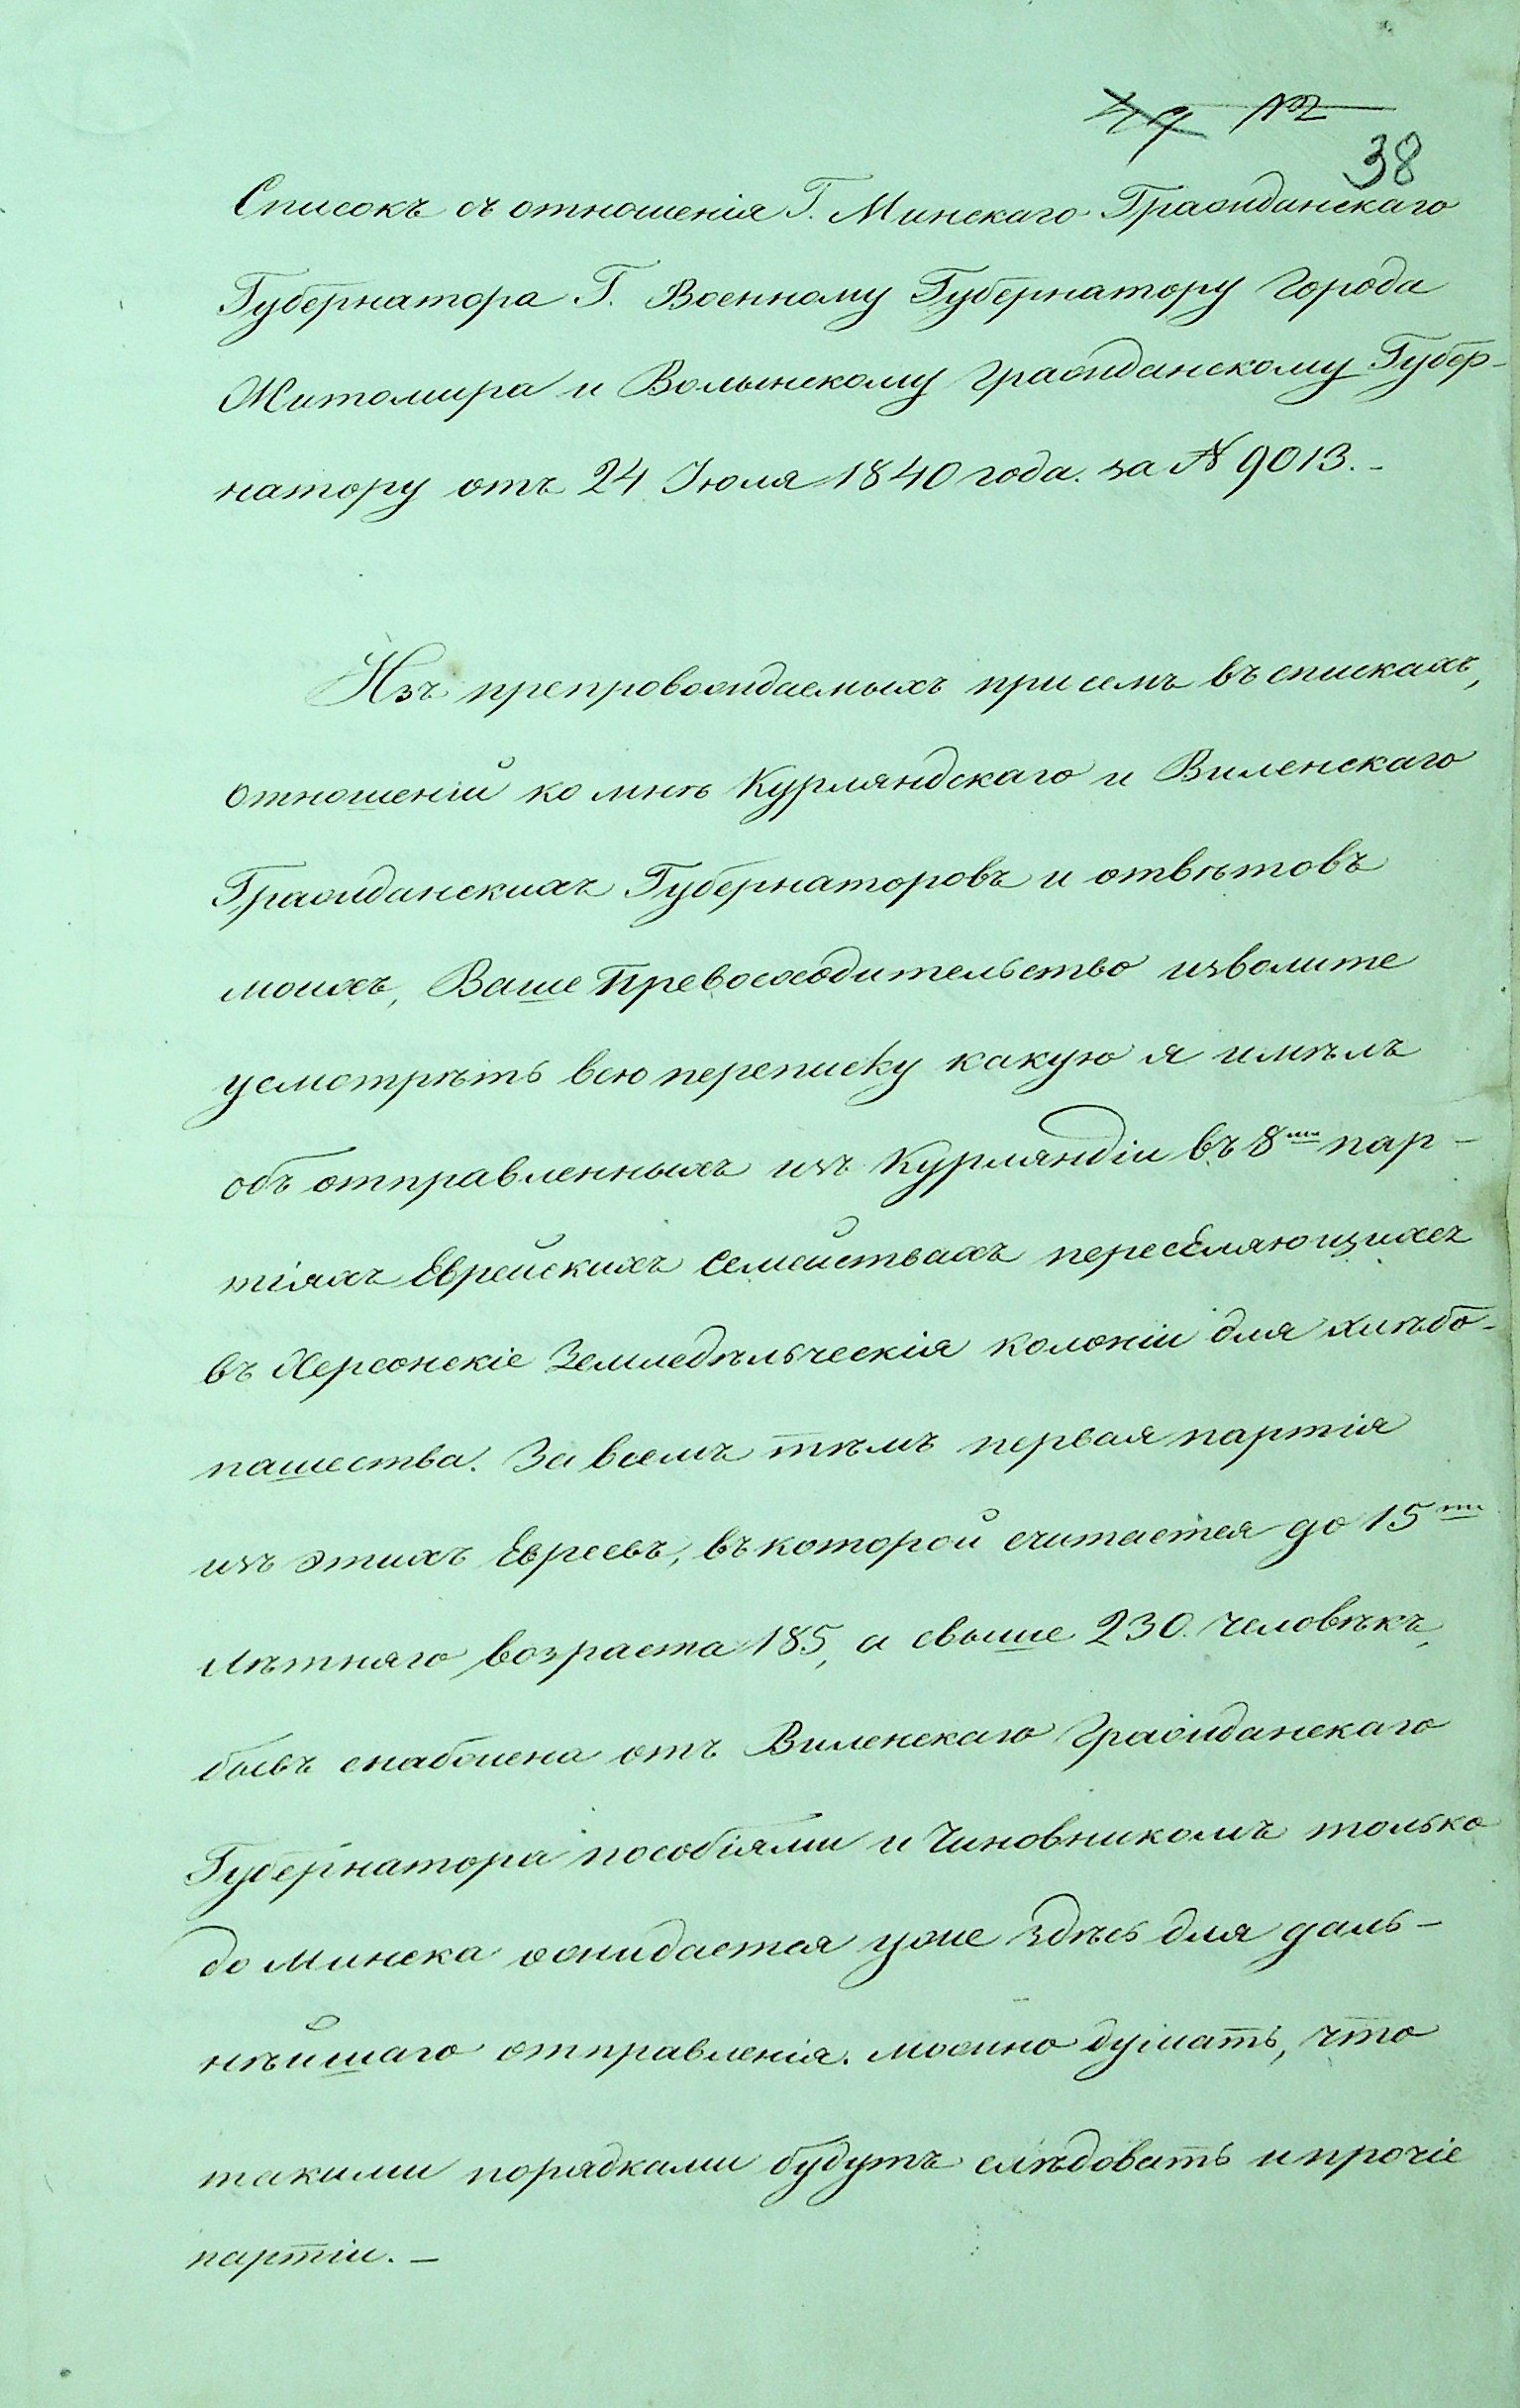 38
Списокъ съ отношенія Г. Минскаго Гражданскаго
Губернатора Г. Военному Губернатору города
Житомира и Волынскому Гражданскому Губер-
натору отъ 24 Іюля 1840 года за № 9013.-
Изъ препровождаемыхъ при семъ въ спискахъ,
отношеній ко мнѣ Курляндскаго и Виленскаго
Гражданскихъ Губернаторовъ и отвѣтовъ
моихъ, Ваше Превосходительство изволите
усмотрѣть всю переписку какую я имѣлъ
объ отправленныхъ изъ Курляндіи въ 8ми пар-
тіяхъ Еврейскихъ Семействахъ переселяющихся
въ Херсонскіе Земледѣльческія колоніи для хлѣбо-
пашества. За всемъ тѣмъ первая партія
изъ этихъ Евреевъ, въ которой считается до 15ти
лѣтняго возраста 185, а свыше 230. человѣкъ,
бывъ снабжена отъ Виленскаго Гражданскаго
Губернатора пособіями и Чиновникомъ только
до Минска ожидается уже здѣсь для даль-
нѣйшаго отправленія. можно думать, что
такими порядками будутъ слѣдовать и прочіе
партіи.-